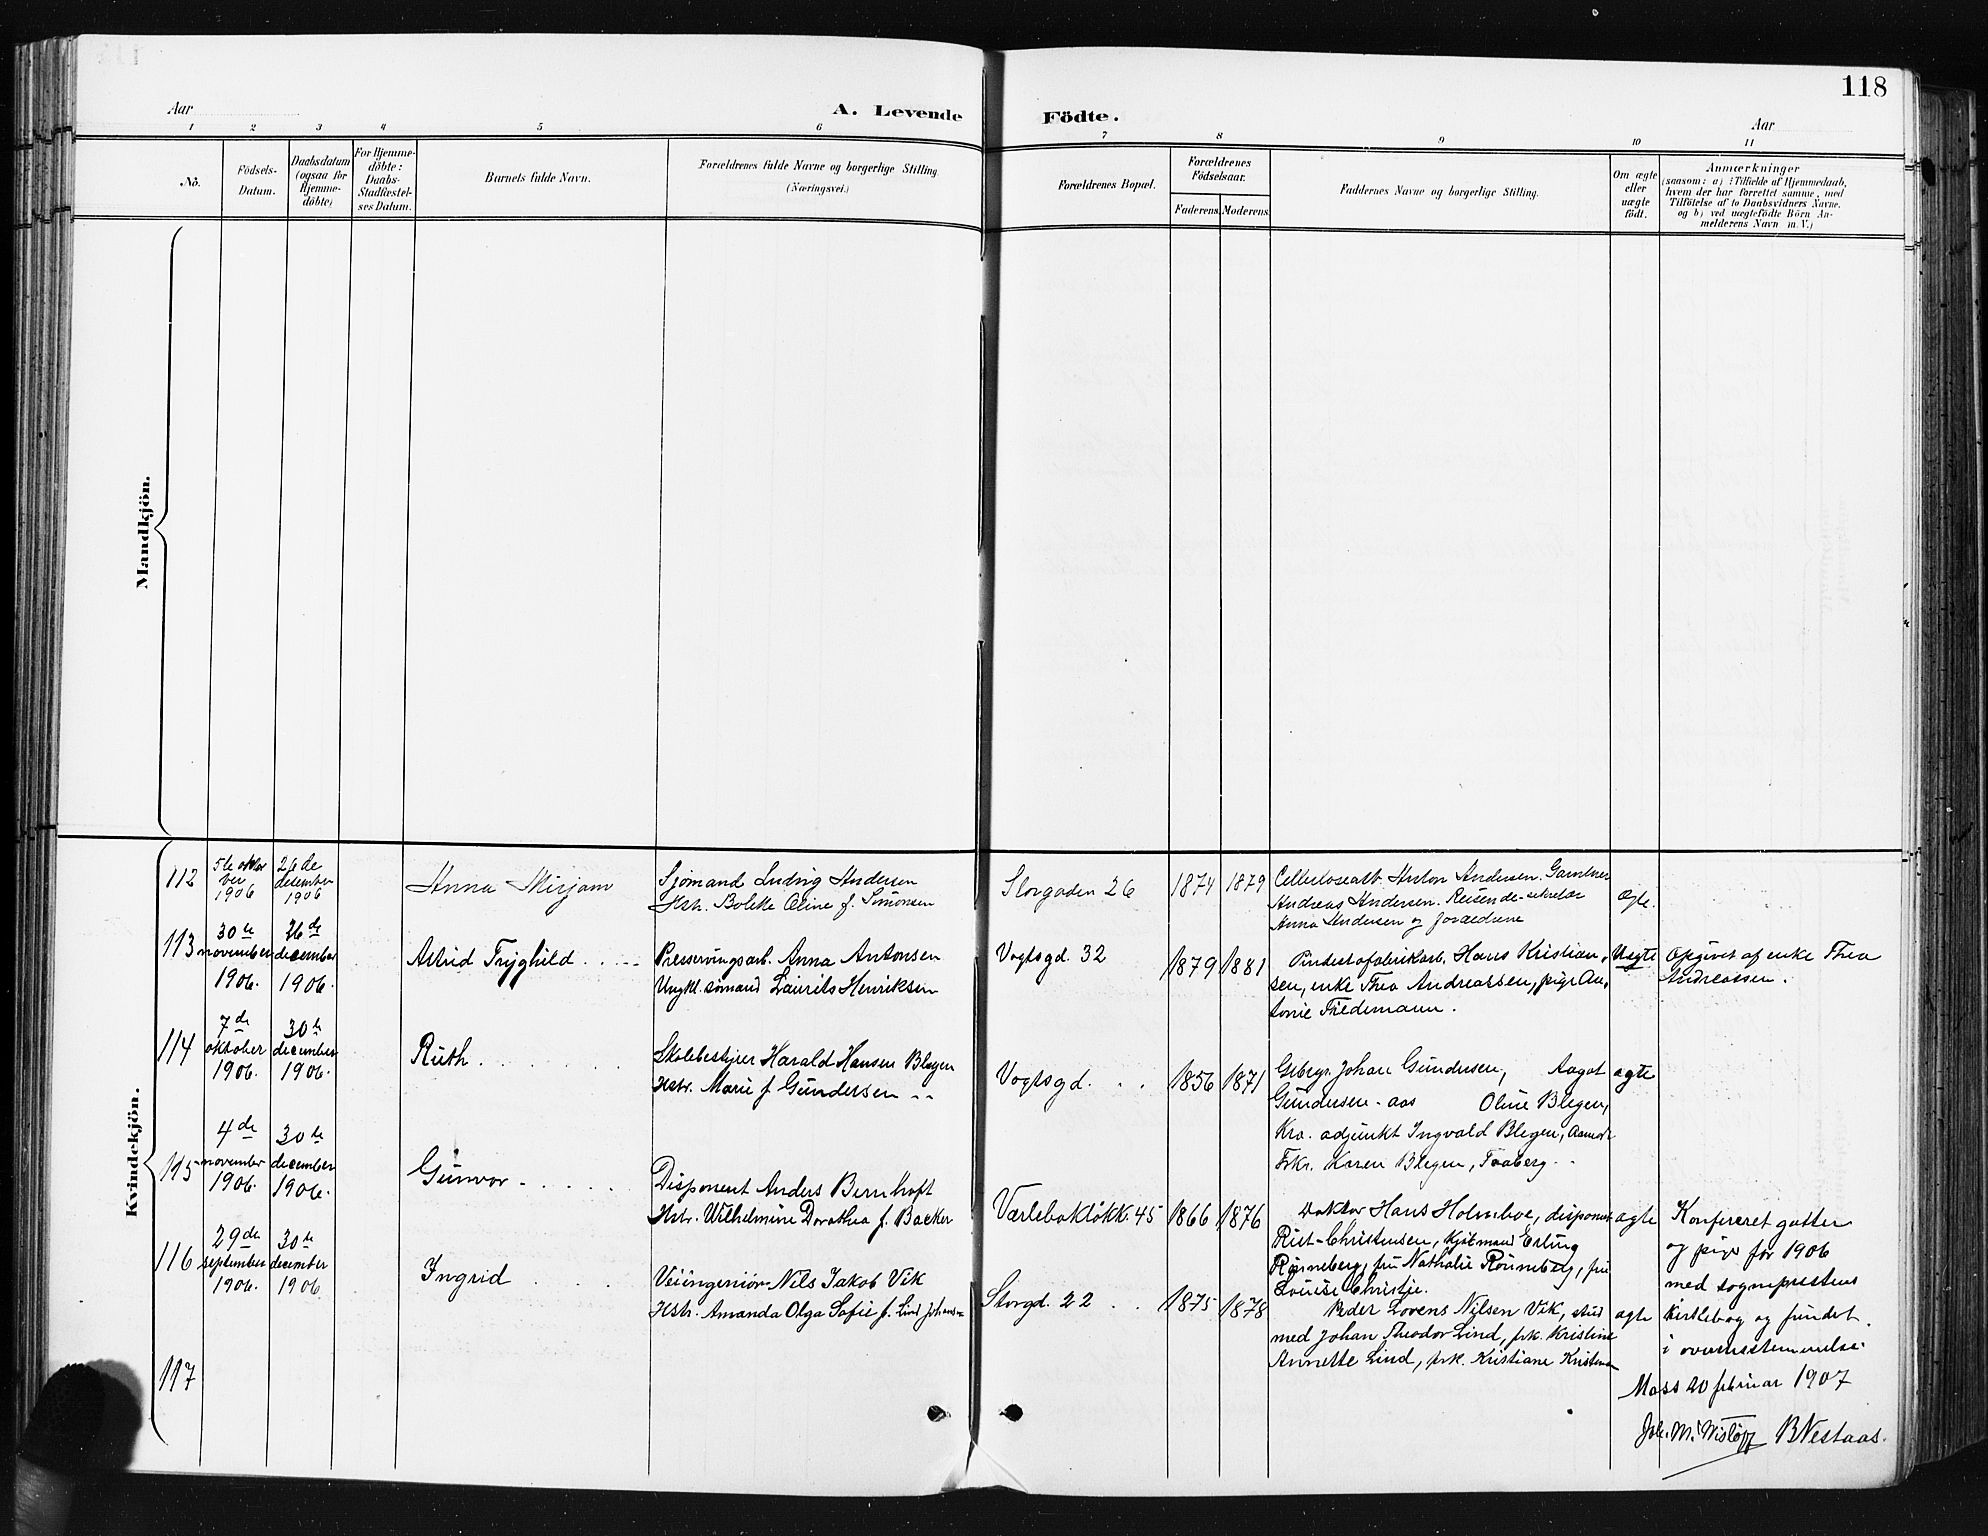 118
Aar
A. Levende
Födte.
Aar
1 2 3 4 5 6 7 8 9 10 11
Nô.
Födsels-
Datum.
Daabsdatum
(ogsaa for
Hjemme-
döbte)
For Hjemme-
döbte:
Daabs-
Stadfæstel-
ses Datum.
Barnets fulde Navn.
Forældrenes fulde Navne og borgerlige Stilling.
(Næringsvei.)
Forældrenes Bopæl.
Forældrenes
Födselsaar.
Faderens. Moderens.
Faddernes Navne og borgerlige Stilling.
Om ægte
eller
uægte
födt.
Anmærkninger
(saasom: a) i Tilfælde af Hjemmedaab,
hvem der har forrettet samme, med
Tilföielse af to Daabsvidners Navne,
og b) ved uægtefödte Börn An-
melderens Navn m. V.)
Mandkjön.
Kvindekjön.
112
5te okto
ber
1906
26de
december
1906
Anna Mirjam
Sjømand Ludvig Andersen
Hstr. Bolette Oline f. Simonsen
Storgaden 26
1874 1879
Anton Andersen. Gartner
Andreas Andersen. Reisende-sekretær
Anna Andersen og forældrene
Ægte.
113
30te
november
1906.
26de
december
1906.
Astrid Tryghild
Preserveringsarb. Anna Antonsen
Ungkl. sømand Laurits Henriksen
Vogtsgd. 32
1879 1881
Hans Kristian-
sen, enke Thea Andreassen, pige An-
tonie Friedemann.
Uægte
Opgivet af enke Thea
Andreassen.
114
7de
oktober
1906.
30te
december
1906.
Ruth
Skolebestyrer Harald Hansen Blegen
Hstr. Marie f. Gundersen
Vogtsgd.
1856 1871
Johan Gundersen, Aagot
Gundersen - aas Oline Blegen,
Kra. adjunkt Ingvald Blegen,
Frk. Karen Blegen, Faaberg
ægte
115
4de
november
1906.
30te
december
1906.
Gunvor
Disponent Anders Bernhoft
Hstr. Wilhelmine Dorothea f. Backer
Værlebakløkk. 45
1866 1876
Doktor Hans Holmboe, disponent
Riet-Christensen, kjøbmand Erling
Rønneberg, fru Nathalie Rønneberg, fru
Louise Christie.
ægte
Konfereret gutter
og piger for 1906
med sogneprestens
kirkebog og fundet
i overensstemmelse.
116
29de
september
1906.
30te
december
1906.
Ingrid
Veiingeniør Nils Jakob Vik
Hstr. Amanda Olga Sofie f. Lind Johansen
Storgd. 22
1875 1878
Peder Lorens Nilsen Vik, stud
med Johan Theodor Lind, frk. Kristine
Annette Lind, frk. Kristiane Kristensen
ægte
117
Moss 20 februar 1907
Joh. M. Wisløff B Nestaas.